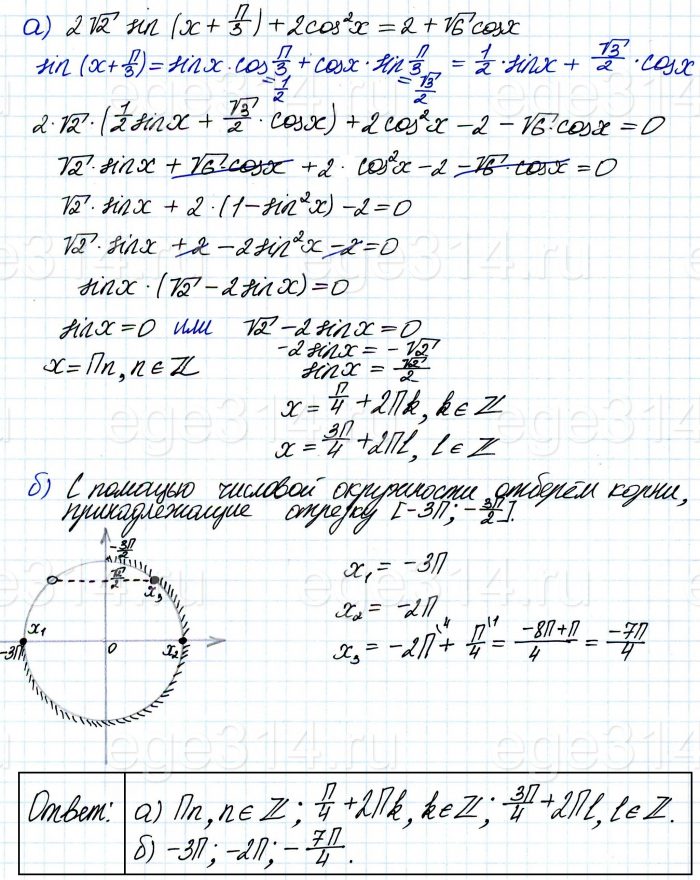 а) 2√2 sin (x + П/3) + 2cos²x = 2 + √6 cosx
sin (x + П/3) = sinx · cos П/3 + cosx · sin П/3 = 1/2 · sinx + √3/2 · cosx
= 1/2 = √3/2
2 · √2 · (1/2 sinx + √3/2 · cosx) + 2cos²x − 2 − √6 · cosx = 0
√2 · sinx + √6 · cosx + 2 · cos²x − 2 − √6 · cosx = 0
√2 · sinx + 2 · (1 − sin²x) − 2 = 0
√2 · sinx + 2 − 2sin²x − 2 = 0
sinx · (√2 − 2sinx) = 0
sinx = 0 или √2 − 2sinx = 0
−2sinx = −√2
x = Пn, n ∈ ℤ sinx = √2/2
x = П/4 + 2Пk, k ∈ ℤ
x = 3П/4 + 2Пl, l ∈ ℤ
б) С помощью числовой окружности отберём корни,
принадлежащие отрезку [−3П; −3П/2].
−3П/2
√2/2
x₃
x₁
−3П
0
x₂
x₁ = −3П
x₂ = −2П
x₃ = −2П\4 + П/4\1 = −8П+П/4 = −7П/4
Ответ: а) Пn, n ∈ ℤ; П/4 + 2Пk, k ∈ ℤ; 3П/4 + 2Пl, l ∈ ℤ.
б) −3П; −2П; −7П/4.
ege314.ru